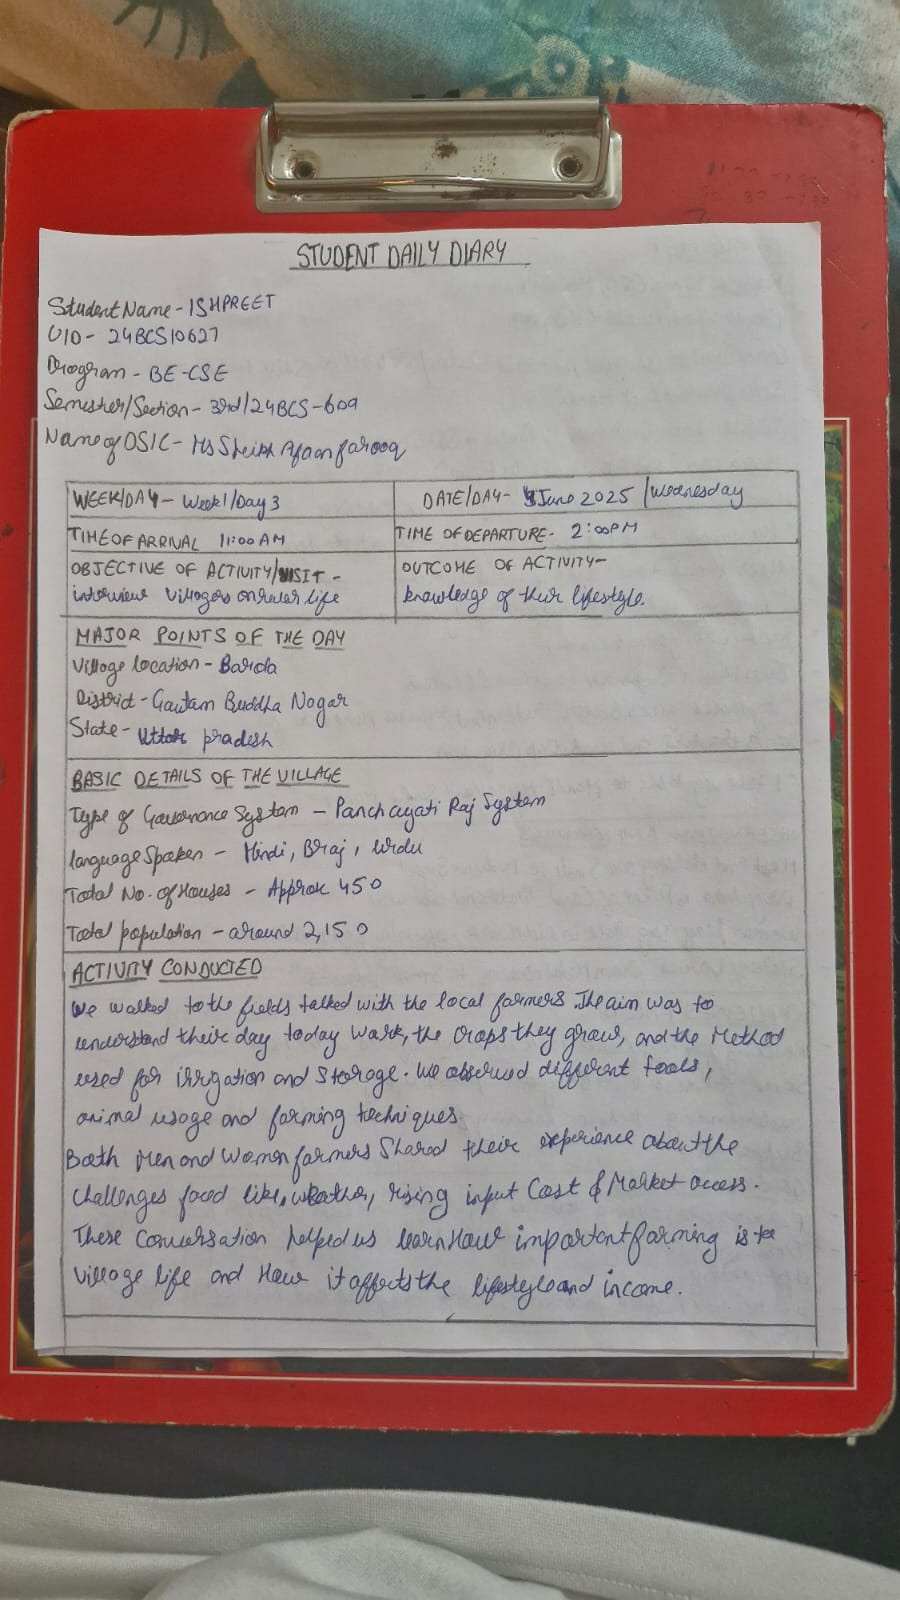 STUDENT DAILY DIARY
Student Name - ISHPREET
UID - 24BCS10627
Program - BE-CSE
Semester/Section - 3rd/24BCS-609
Name of OSIC - Ms Sheikh Afaan farooq
WEEK/DAY - Week1/Day3
DATE/DAY- June 2025 / Wednesday
TIME OF ARRIVAL 11:00 AM
TIME OF DEPARTURE- 2:00PM
OBJECTIVE OF ACTIVITY/VISIT -
interview villagers on rular life
OUTCOME OF ACTIVITY-
knowledge of their lifestyle.
MAJOR POINTS OF THE DAY
Village location - Barola
District - Gautam Buddha Nagar
State - Uttar pradesh
BASIC DETAILS OF THE VILLAGE
Type of Governance System - Panchayati Raj System
language Spoken - Hindi, Braj, Urdu
Total No. of Houses - Approx 450
Total population - around 2,150
ACTIVITY CONDUCTED
We walked to the fields talked with the local farmers. The aim was to
understand their day today work, the crops they grow, and the Method
used for irrigation and Storage. We observed different tools,
animal usage and farming techniques
Both Men and Women farmers Shared their experience about the
challenges faced like, weather, rising input Cost & Market access.
These Conversation helped us learn How important farming is to
village life and How it affects the lifestyle and income.